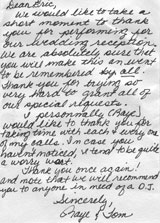 Dear Eric,
We would like to take a
short moment to thank
you for performing for
our wedding reception.
We are absolutely sure that
you will make this an event
to be remembered by all.
Thank you for trying so
very hard to grant all of
our special requests.
I personally (Gaye)
would like to thank you for
taking time with each & every one
of my calls. In case you
haven't noticed, I tend to be quite
a worry wort.
Thank you once again!
and note that we will recommend
you to anyone in need of a D.J.
Sincerely,
Gaye & Tom